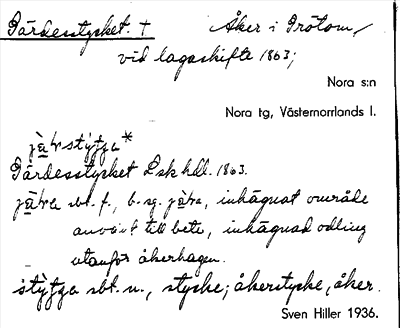 Gärdesstycket. † Åker i Grötom,
vid lagaskifte 1863;
Nora s:n
Nora tg, Västernorrlands l.
Gärdesstycket Lsk hdl. 1863.
sbt. f., b. sg. inhägnat område
använt till bete, inhägnad odling
utanför åkerhagen.
sbt. n., stycke; åkerstycke, åker.
Sven Hiller 1936.